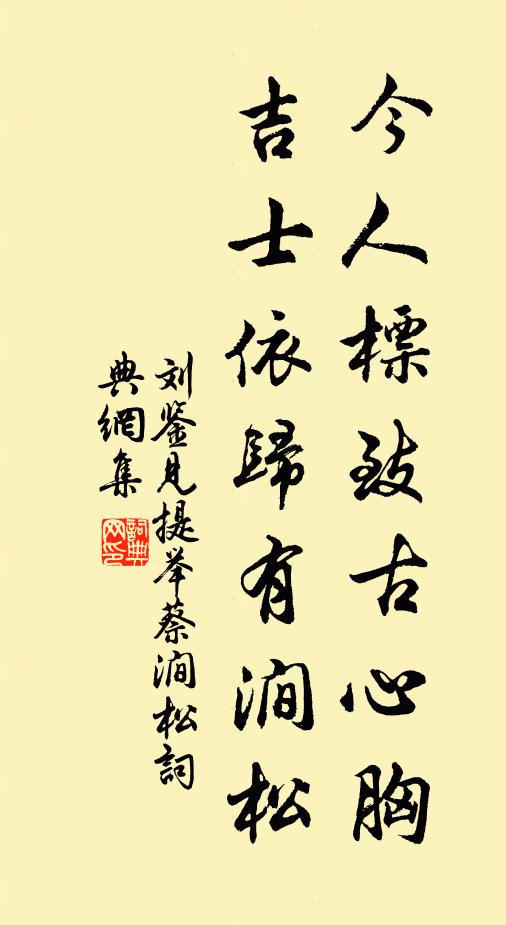 今人標致古心胸
吉士依歸有澗松
刘鉴見提举蔡澗松詞
典網集
詞典网印